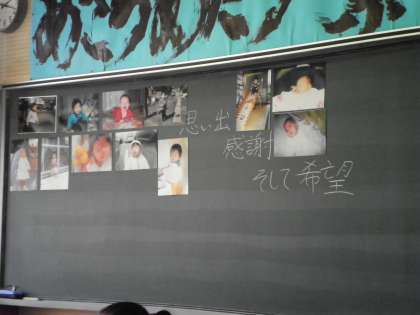 思い出
感謝
そして希望